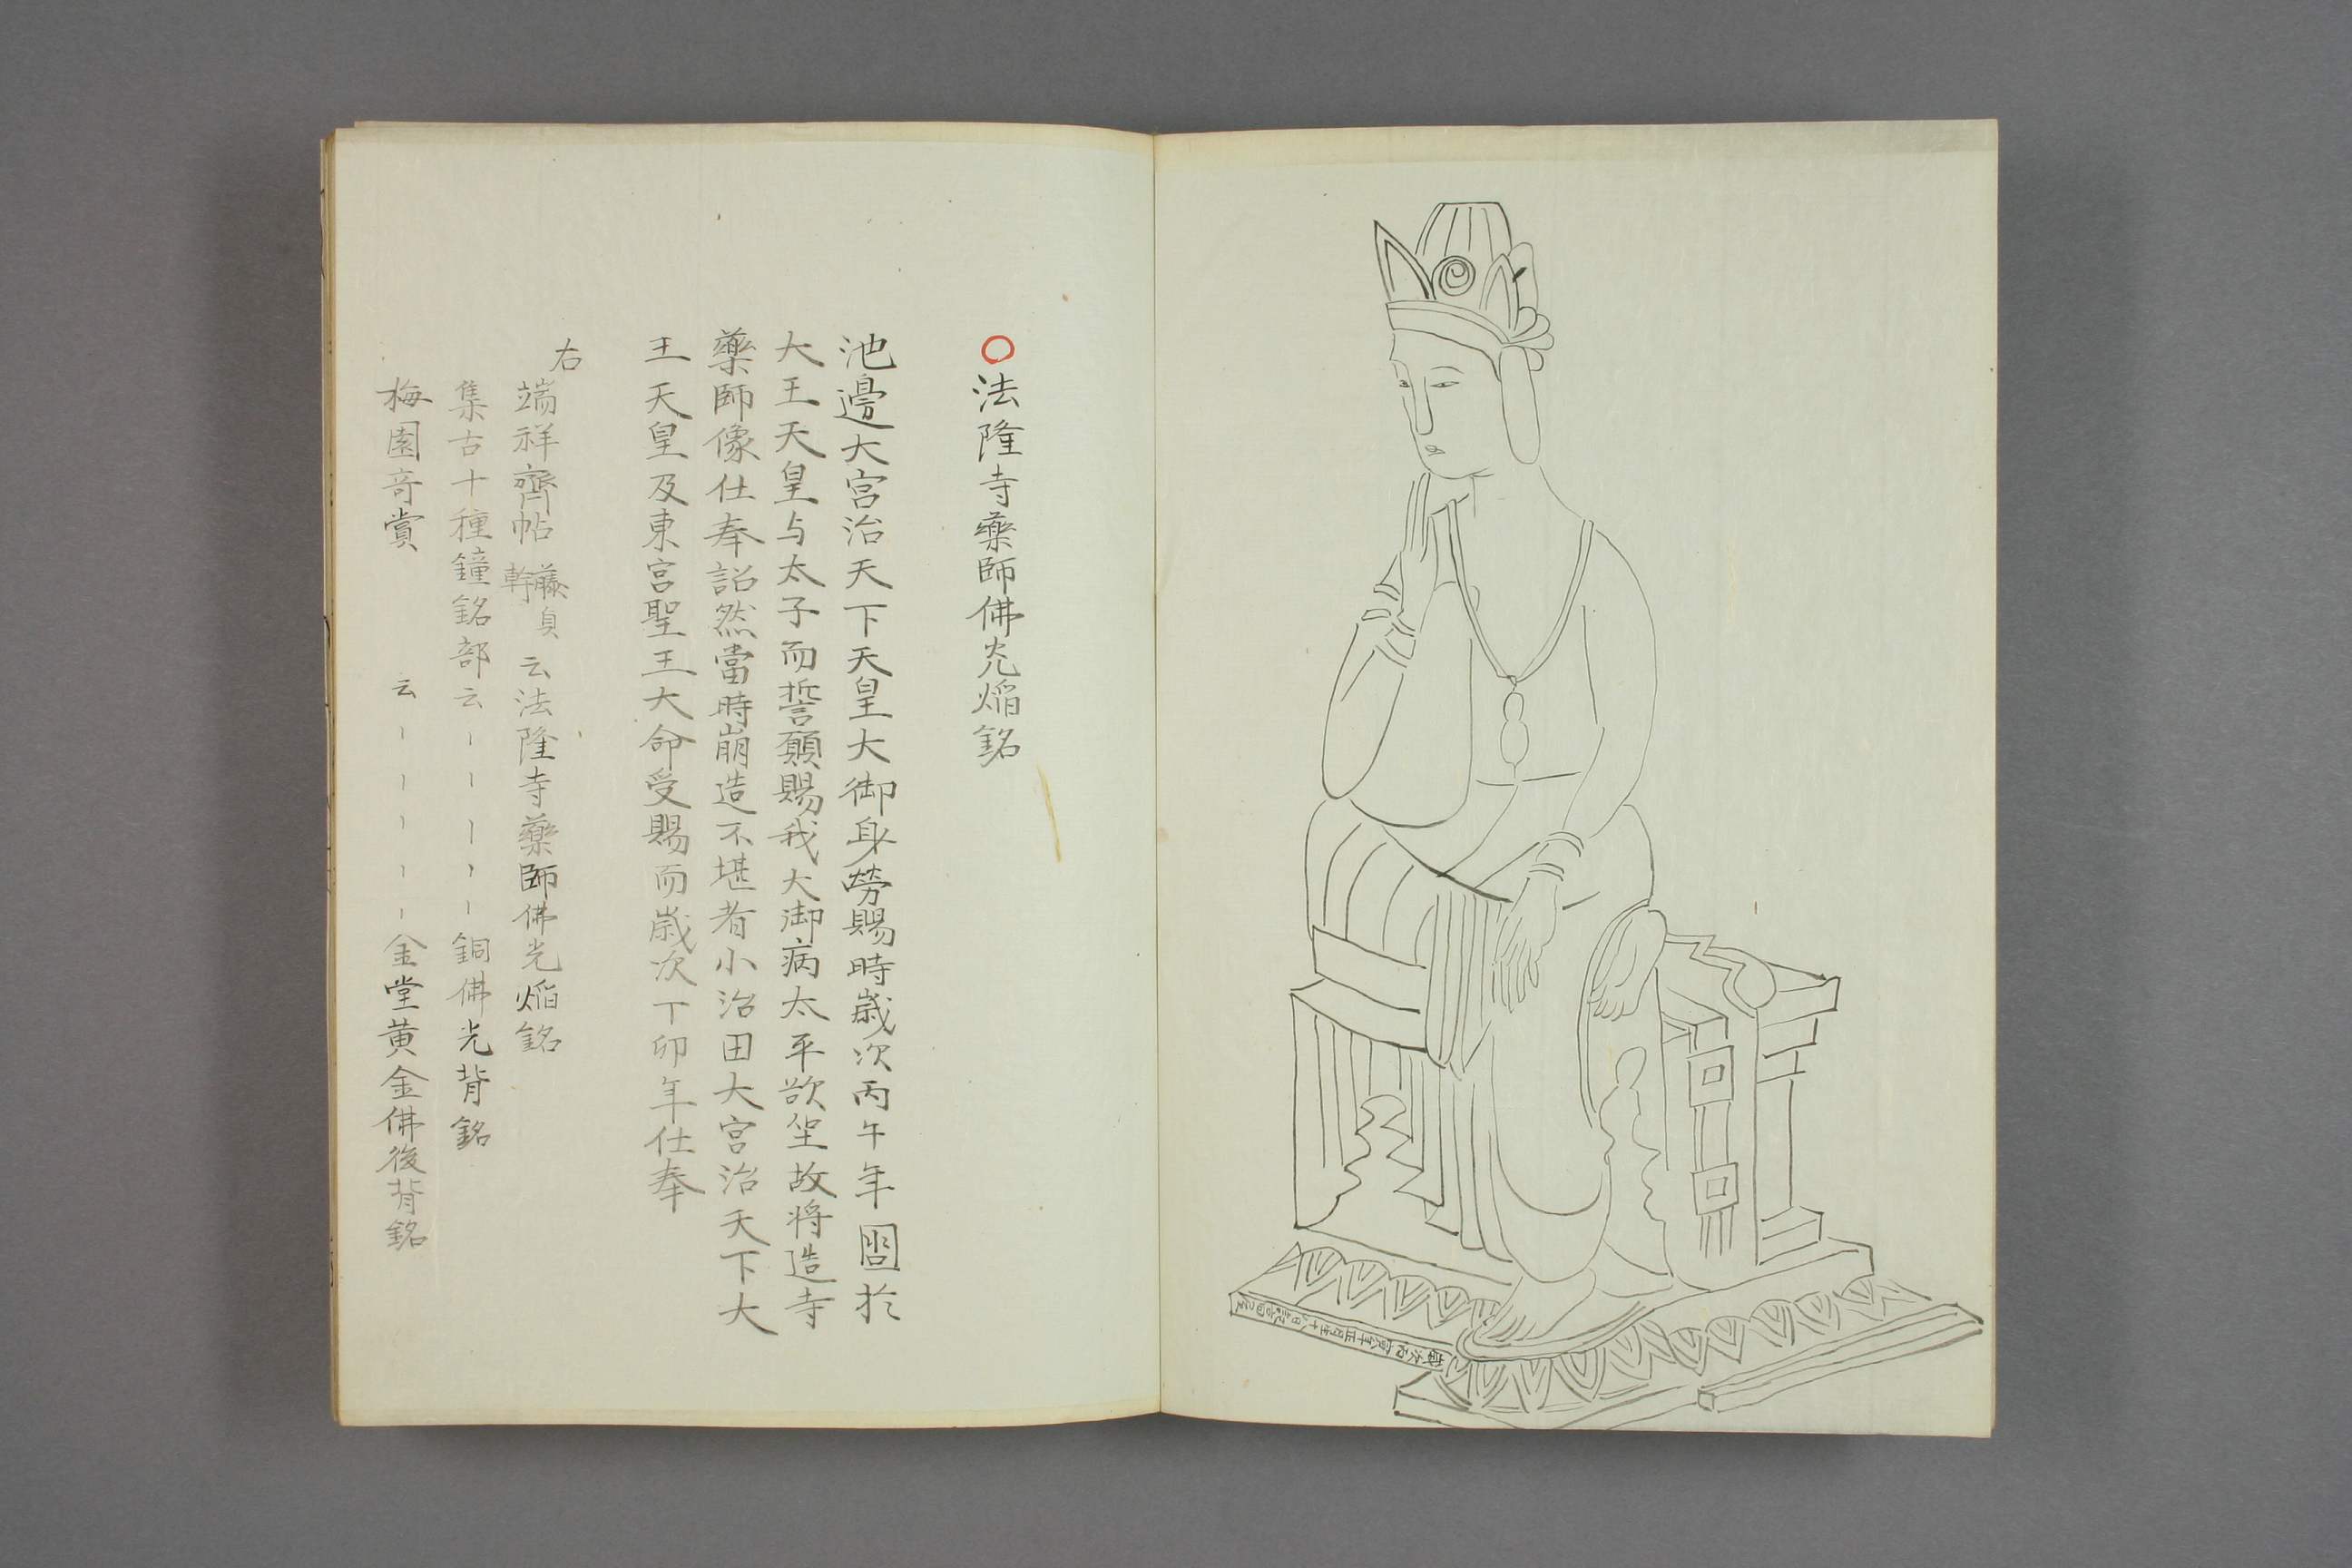 〇法隆寺藥師佛光焔銘
池邊大宮治天下天皇大御身勞賜時歳次丙午年圀於
大王天皇与太子而誓願賜我大御病太平欲坐故将造寺
藥師像仕奉詔然當時崩造不堪者小治田大宮治天下大
王天皇及東宮聖王大命受賜而歳次丁卯年仕奉
右
端祥齊帖 藤貞幹 云法隆寺藥師佛光焔銘
集古十種鐘銘部云 〻 〻 〻 〻 〻 銅佛光背銘
梅園奇賞 云 〻 〻 〻 〻 〻 金堂黄金佛後背銘